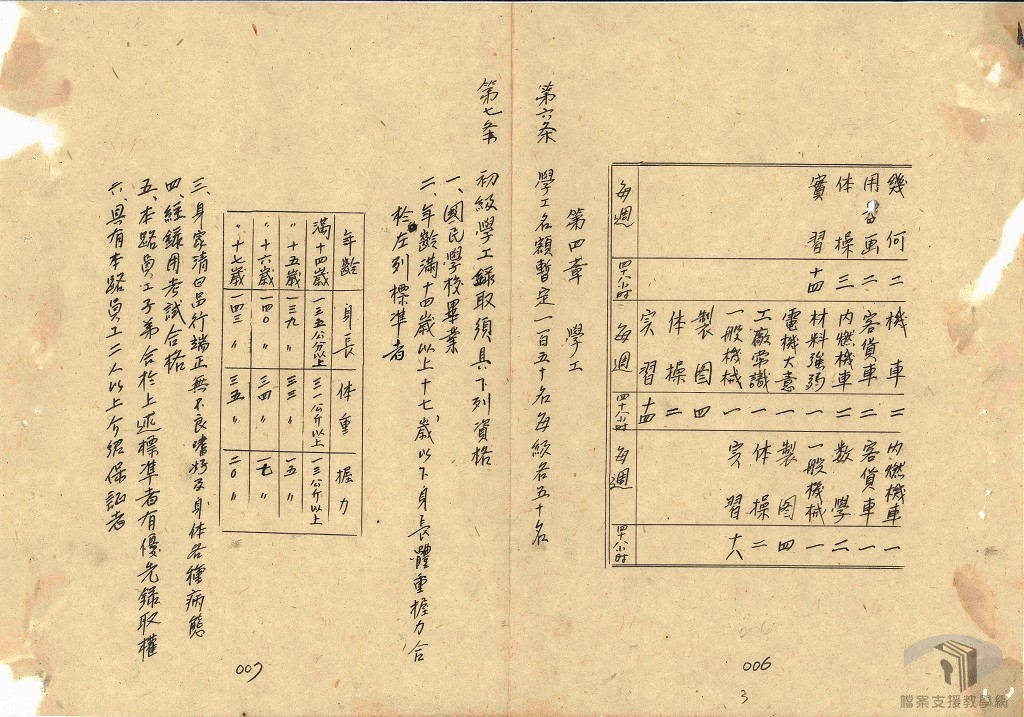 幾何 二 機車 二 內燃機車 一
用器画 二 客貨車 二 客貨車 一
体操 三 內燃機車 二 数學 二
實習 十四 材料強弱 一 一般機械 一
電機大意 一 製図 四
工廠常識 一 体操 二
一般機械 一 实習 十八
製図 四
体操 二
実習 十四
每週 四十八小时 每週 四十八小时 每週 四十八小时
第四章 學工
第六条 學工名額暫定一百五十名每級各五十名
第七条 初級學工錄取須具下列資格
一、國民學校畢業
二、年齡滿十四歲以上十七歲以下身長體重握力合
於左列標準者
年齡 身長 体重 握力
滿十四歲 一三五公分以上 三一公斤以上 一三公斤以上
〃十五歲 一三九〃 三三〃 一五〃
〃十六歲 一四〇〃 三四〃 一七〃
〃十七歲 一四三〃 三五〃 二〇〃
三、身家清白品行端正無不良嗜好及身体各種病態
四、經錄用考試合格
五、本路員工子弟合於上述標準者有優先錄取權
六、具有本路員工二人以上介紹保証者
007
006
3
檔案支援教學網